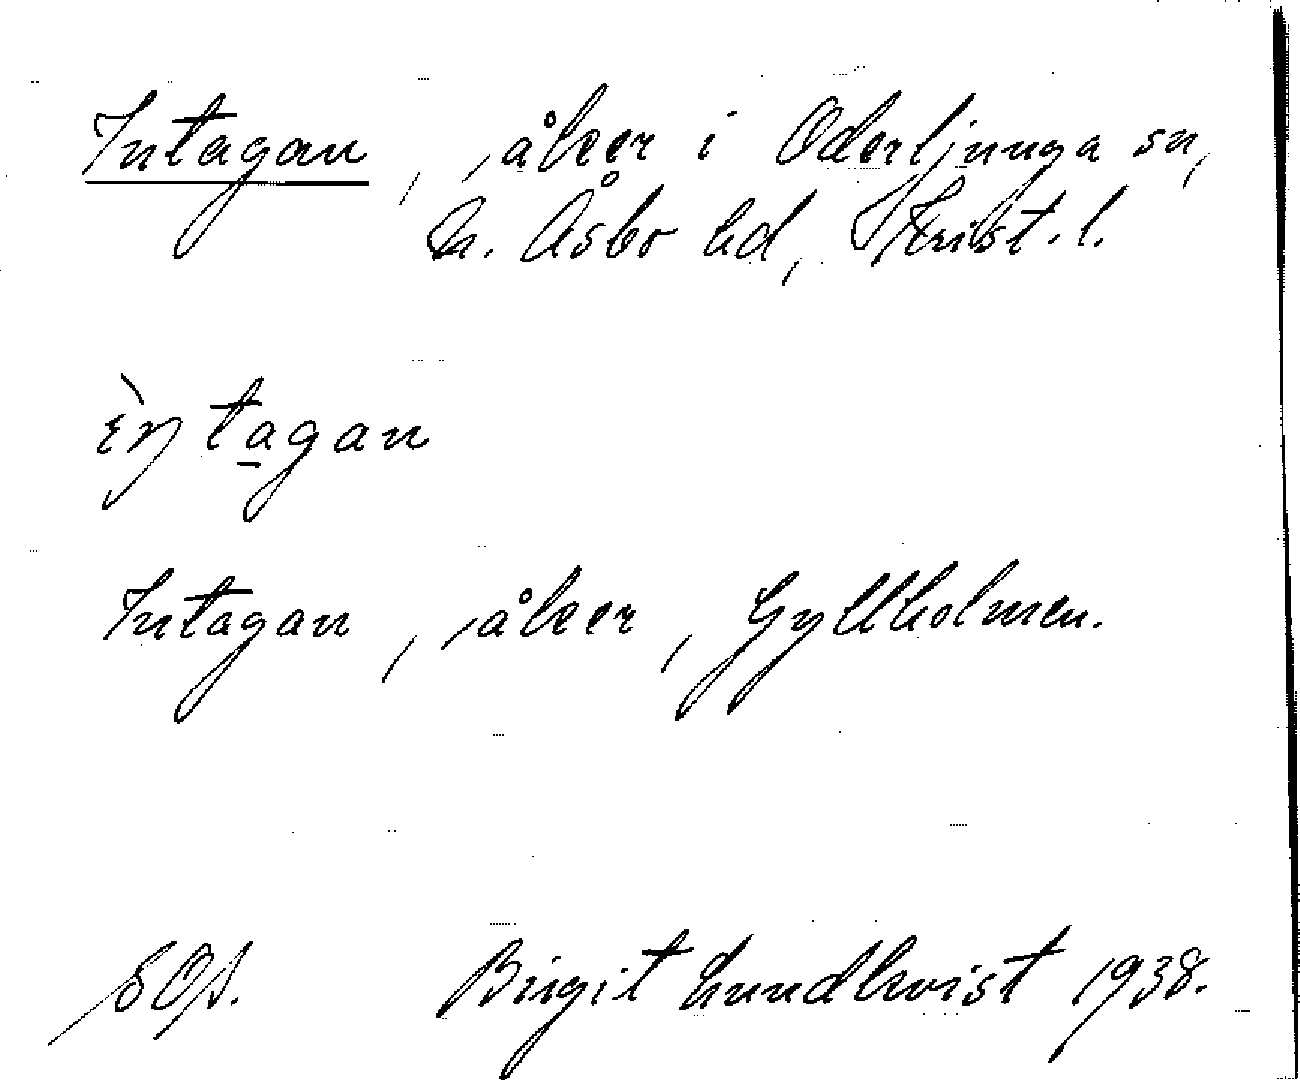 Intagan, åker i Oderljunga sn,
N. Åsbo hd, Krist. l.
èŋtagan
Intagan, åker, Gyllholmen.
Birgit Lundkvist 1938.